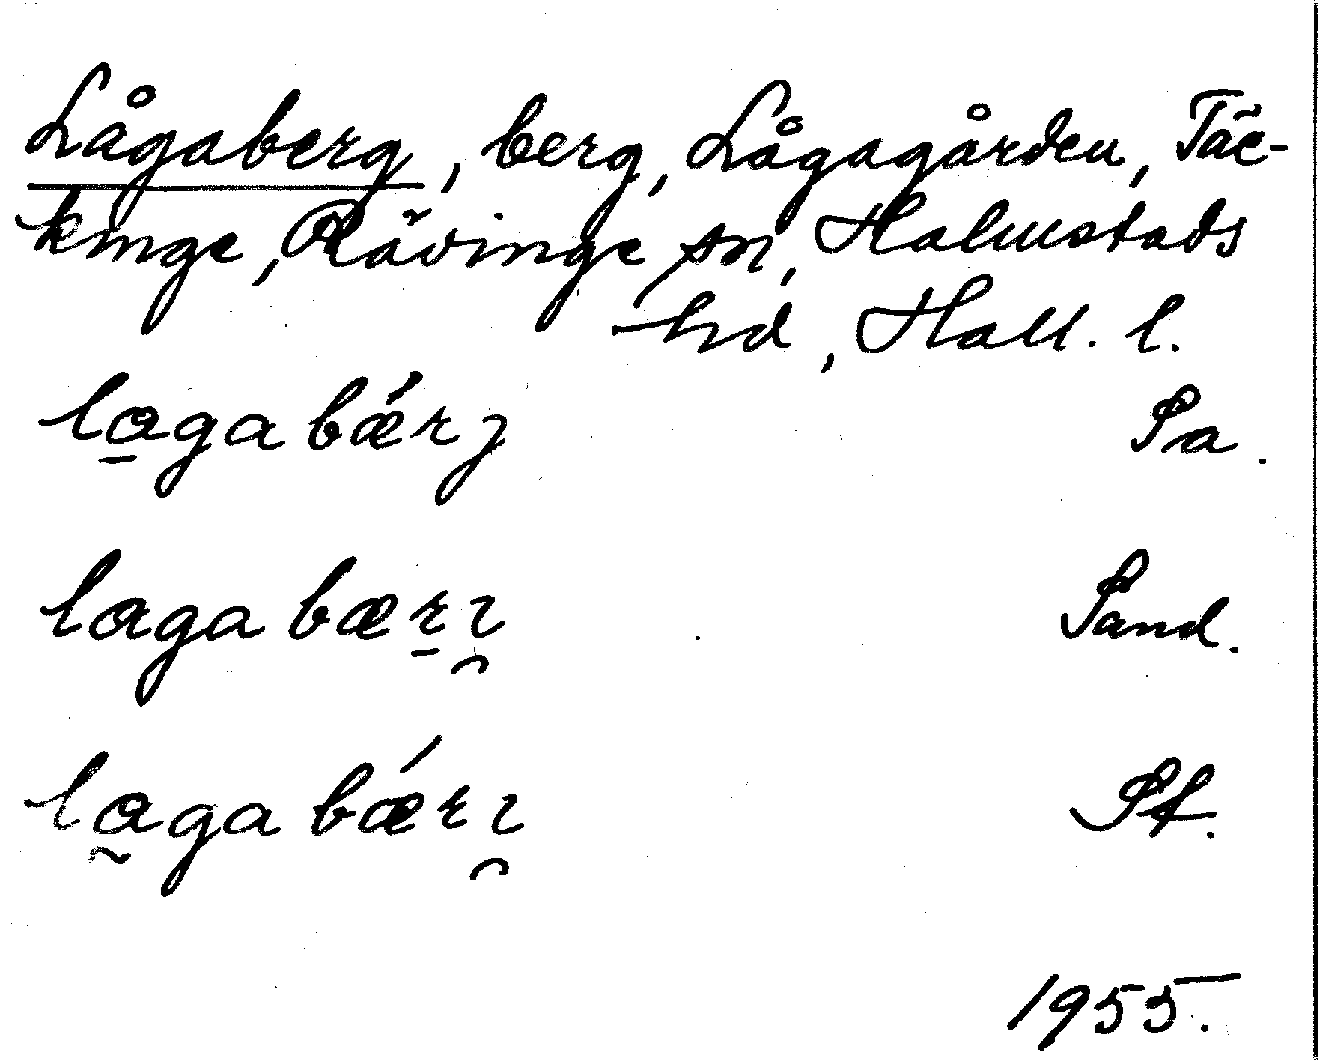 Lågaberg, berg, Lågagården, Täc-
kinge, Rävinge sn, Halmstads
hd, Hall. l.
lɑ̱gabǽrȷ Sa.
lɑgabæṟı̯ Sand.
lɑ̰gabǽrı̯ St.
1955.